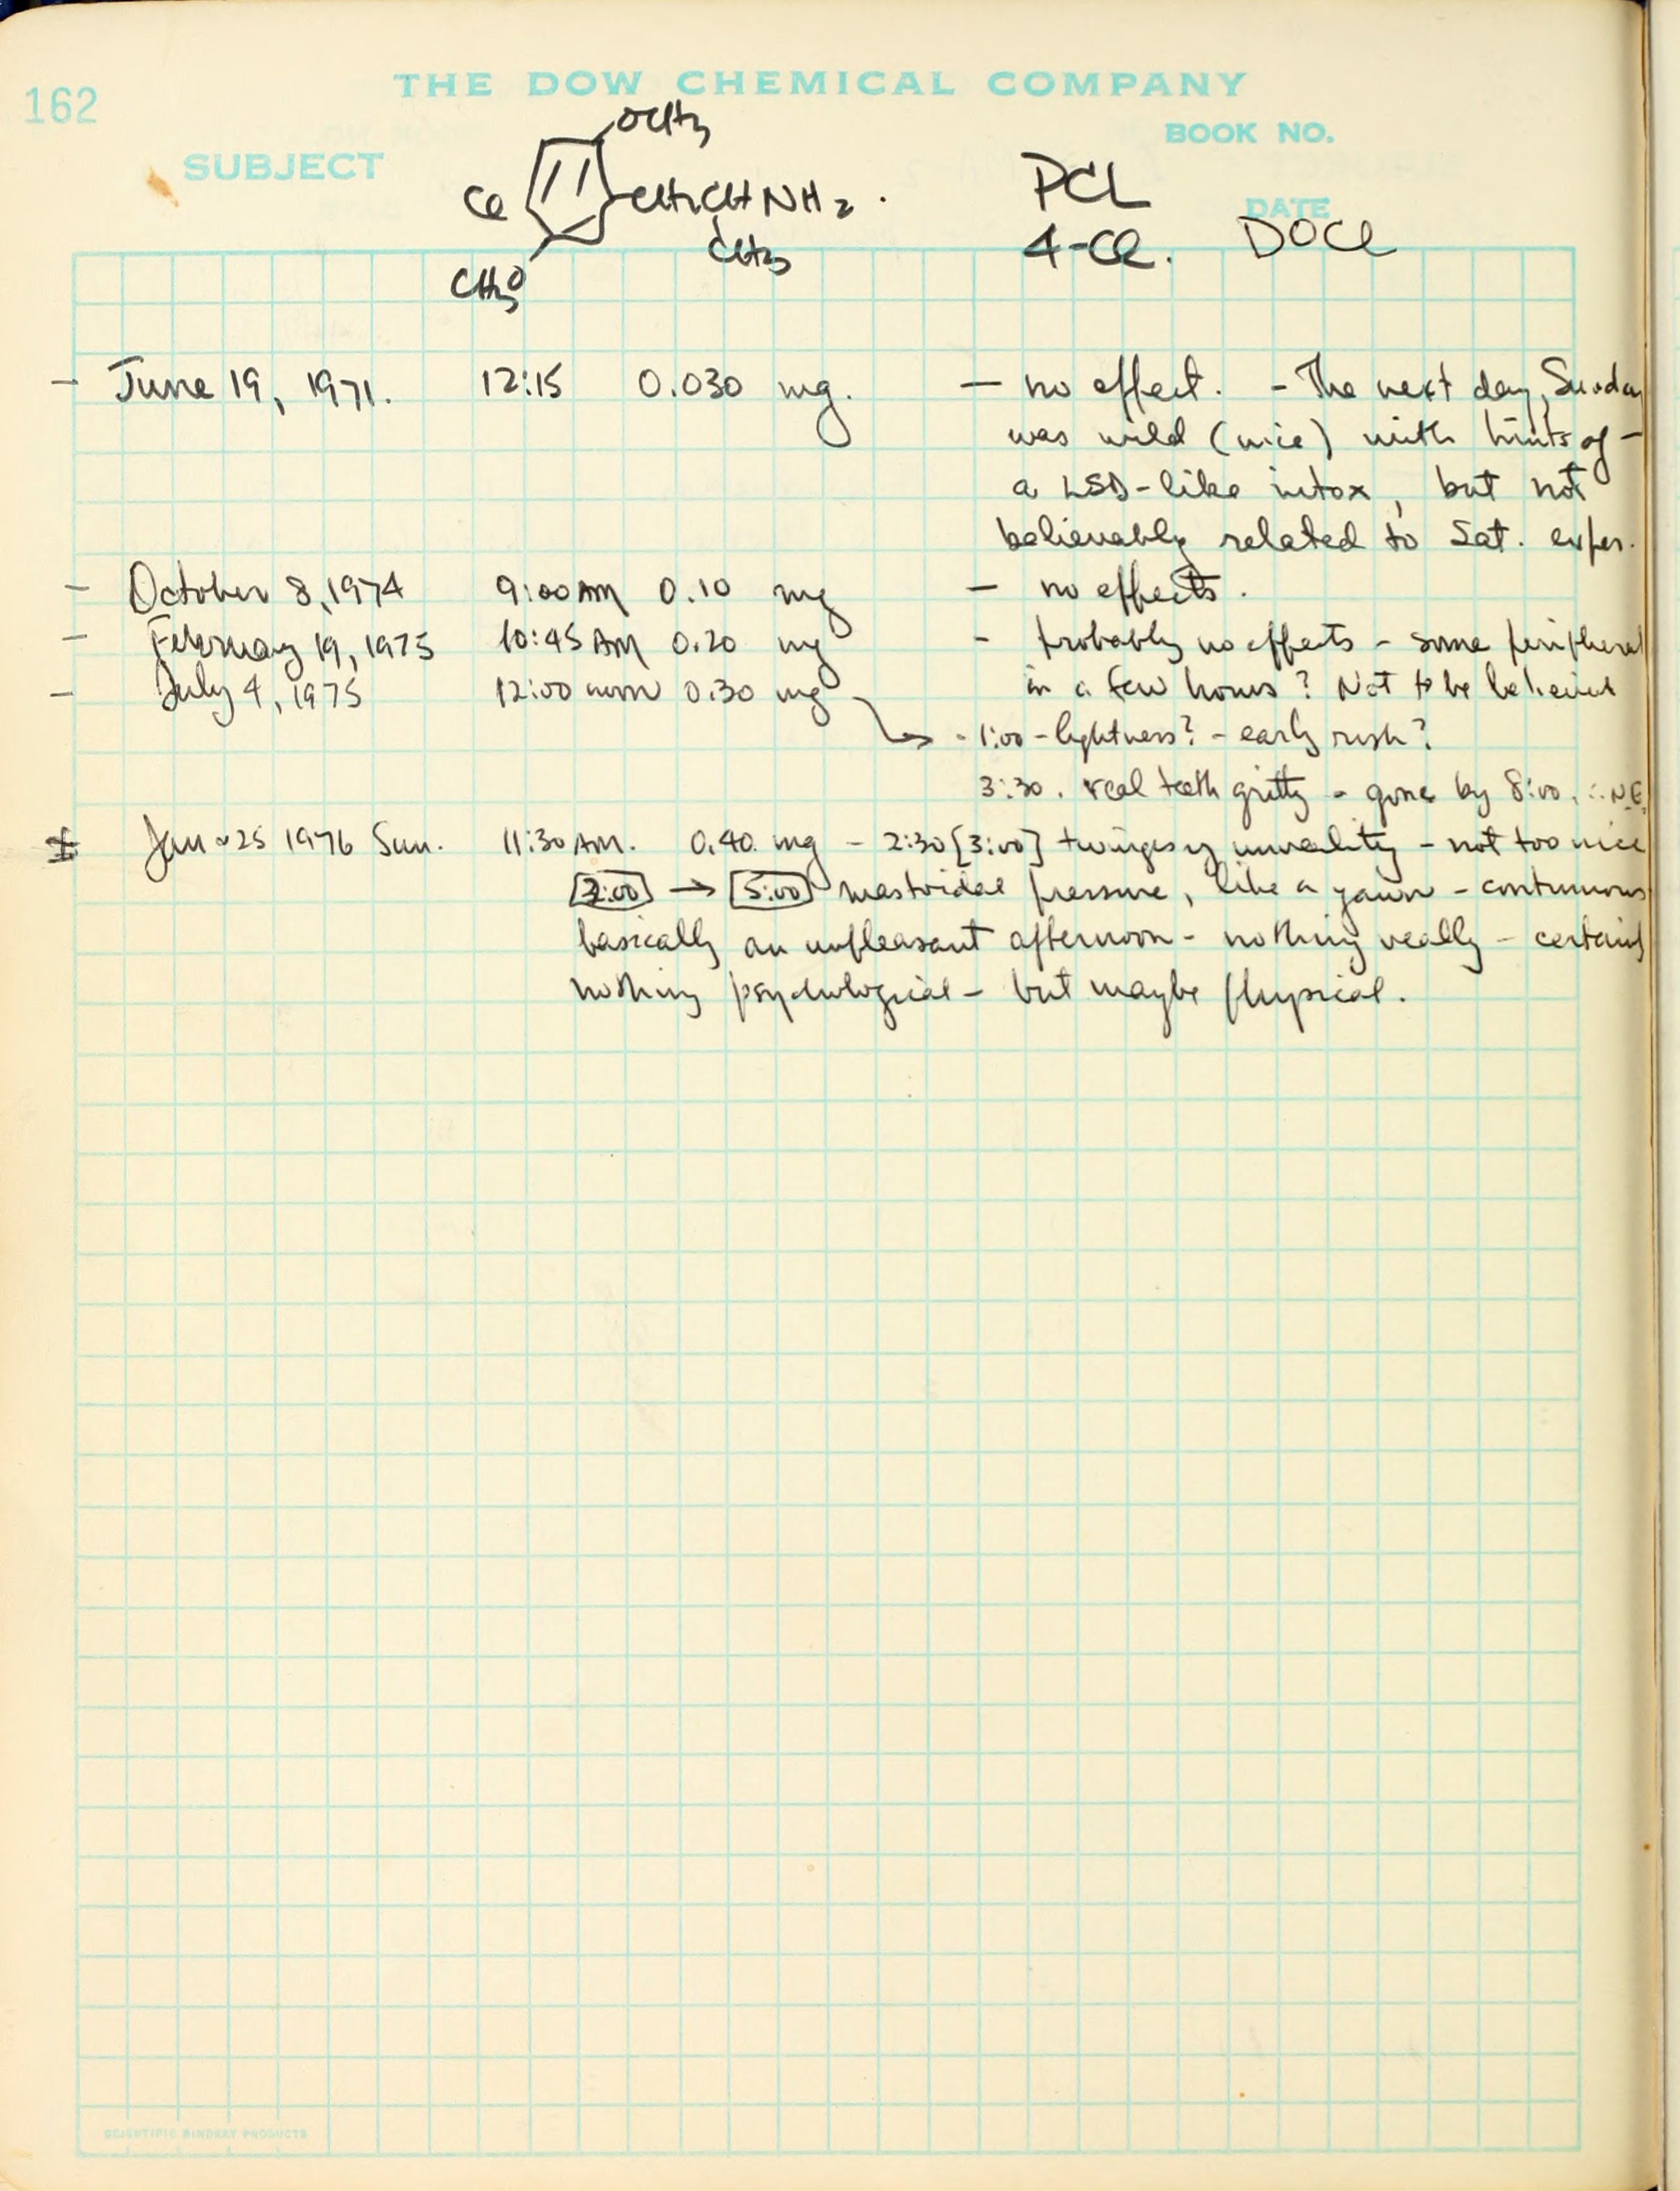 162
THE DOW CHEMICAL COMPANY
BOOK NO.
SUBJECT
DATE
OCH3
Cl CH2CHNH2.
CH3
CH3O
PCL
4-Cl. DOCl
- June 19, 1971. 12:15 0.030 mg. - no effect. - The next day, Sunday
was wild (nice) with hints of -
a LSD-like intox, but not
believably related to Sat. exper.
- October 8, 1974 9:00 AM 0.10 mg - no effects.
- February 19, 1975 10:45 AM 0.20 mg - probably no effects - some peripheral
in a few hours? Not to be believed
- July 4, 1975 12:00 noon 0.30 mg
→ - 1:00 - lightness? - early rush?
3:30. real teeth gritty - gone by 8:00. ∴ N.E.
± Jan 25 1976 Sun. 11:30 AM. 0.40 mg - 2:30 [3:00] twinges of unreality - not too nice
→ [5:00] mastoidal pressure, like a yawn - continuous
basically an unpleasant afternoon - nothing really - certainly
nothing psychological - but maybe physical.
SCIENTIFIC BINDERY PRODUCTS